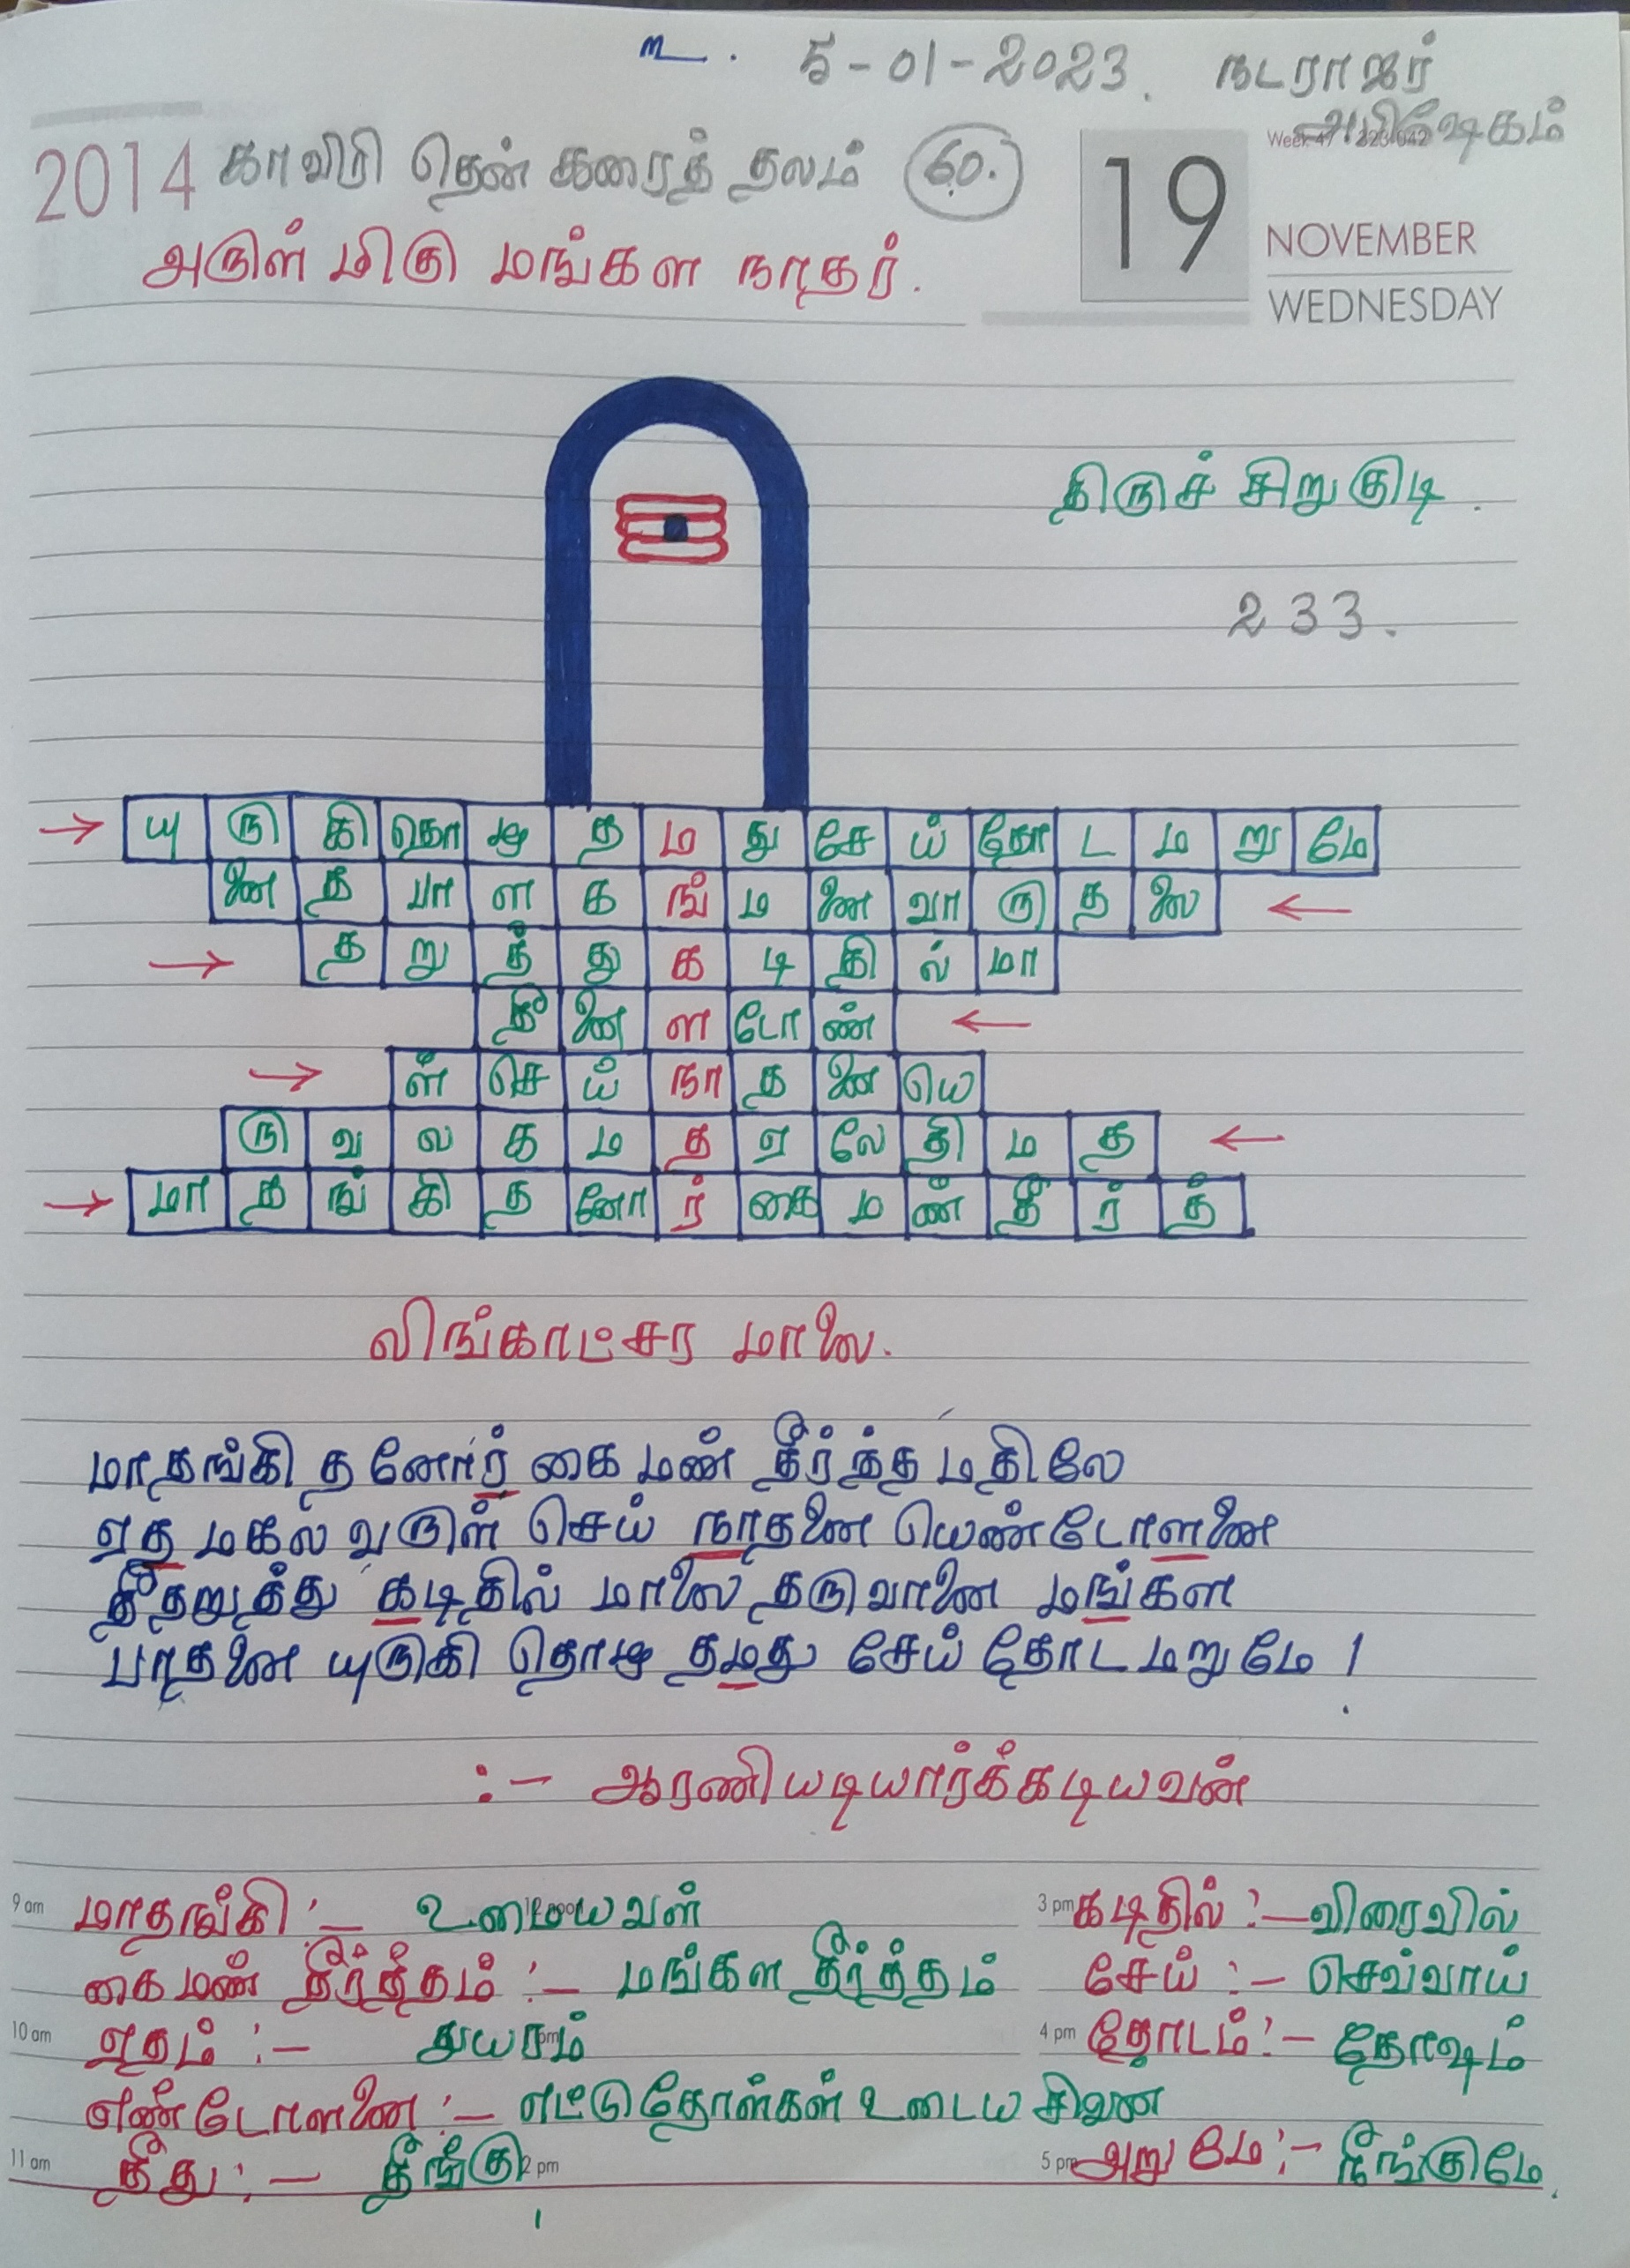 உ. 5-01-2023. நடராஜர்
அபிஷேகம்
2014 காவிரி தென் கரைத் தலம் 60.
19
NOVEMBER
WEDNESDAY
அருள் மிகு மங்கள நாதர்.
திருச் சிறுகுடி.
233.
→ யு ரு கி தொ ழ த ம து சே ய் தோ ட ம று மே
னை த பா ள க ங் ம னை வா ரு த லை ←
→ த று த் து க டி தி ல் மா
தீ னை ள டோ ண் ←
→ ள் செ ய் நா த னை யெ
ரு வ ல க ம த ஏ லே தி ம த ←
→ மா த ங் கி த னோ ர் கை ம ண் தீ ர் த்
லிங்காட்சர மாலை.
மாதங்கி தனோர் கை மண் தீர்த்த மதிலே
ஏத மகல வருள் செய் நாதனை யெண்டோளனை
தீதறுத்து கடிதில் மாலை தருவானை மங்கள
பாதனை யுருகி தொழ தமது சேய் தோட மறுமே !
:- ஆரணியடியார்க்கடியவன்
9 am மாதங்கி :- உமையவள் 3 pm கடிதில் :- விரைவில்
கை மண் தீர்த்தம் :- மங்கள தீர்த்தம் சேய் :- செவ்வாய்
10 am ஏதம் :- துயரம் 4 pm தோடம் :- தோஷம்
எண்டோளனை :- எட்டு தோள்கள் உடைய சிவன்
11 am தீது :- தீங்கு 2 pm 5 pm அறுமே :- நீங்குமே.